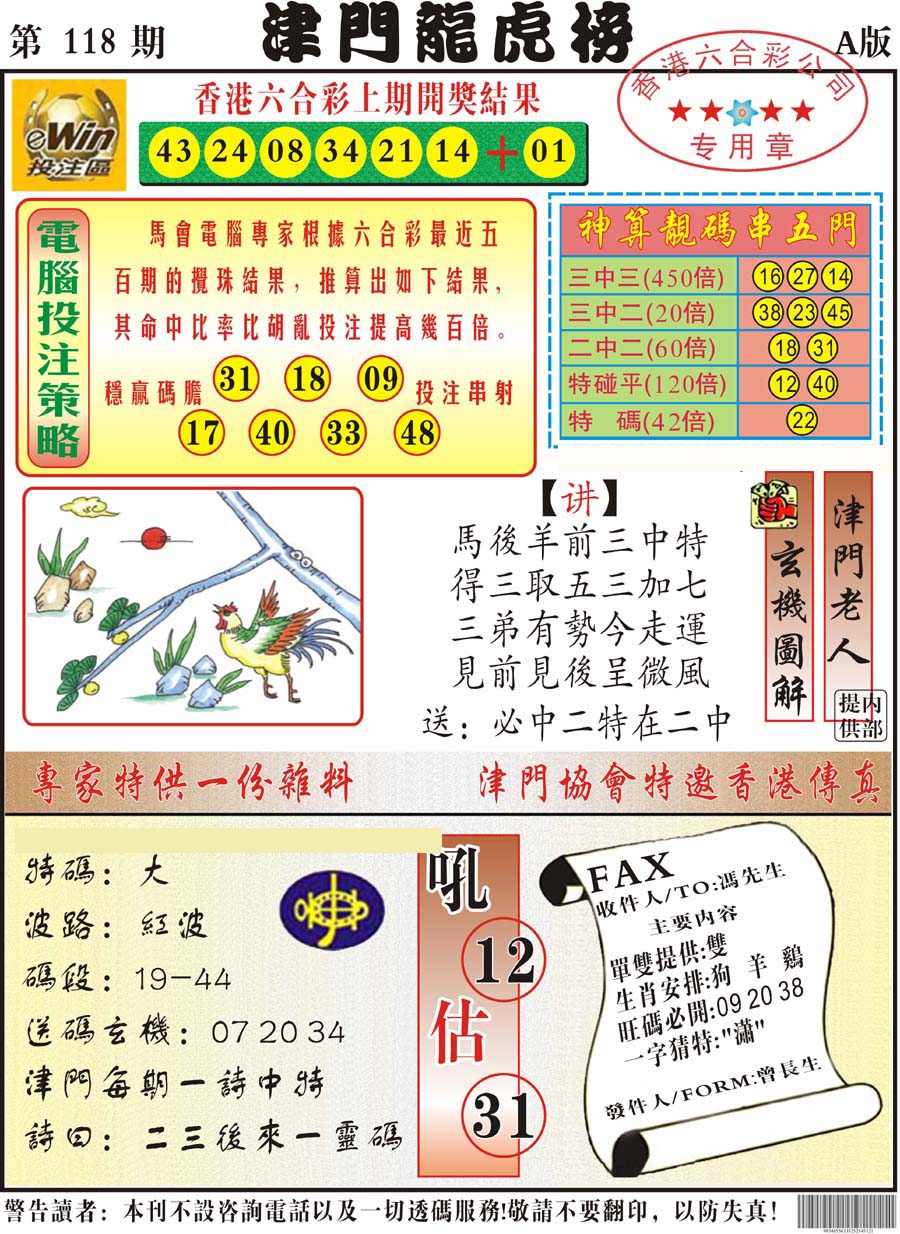 第 118 期
津門龍虎榜
A版
eWin
投注區
香港六合彩上期開獎結果
43 24 08 34 21 14 + 01
香港六合彩公司
专用章
電腦投注策略
馬會電腦專家根據六合彩最近五
百期的攪珠結果，推算出如下結果，
其命中比率比胡亂投注提高幾百倍。
穩贏碼膽 31 18 09 投注串射
17 40 33 48
神算靚碼串五門
三中三(450倍) 16 27 14
三中二(20倍) 38 23 45
二中二(60倍) 18 31
特碰平(120倍) 12 40
特 碼(42倍) 22
【讲】
馬後羊前三中特
得三取五三加七
三弟有勢今走運
見前見後呈微風
送：必中二特在二中
玄機圖解
津門老人
內部提供
專家特供一份雜料
津門協會特邀香港傳真
特碼：大
波路：紅波
碼段：19-44
送碼玄機：07 20 34
津門每期一詩中特
詩曰：二三後來一靈碼
吼
12
估
31
FAX
收件人/TO:馮先生
主要内容
單雙提供:雙
生肖安排:狗 羊 鷄
旺碼必開:09 20 38
一字猜特:"瀟"
發件人/FORM:曾長生
警告讀者：本刊不設咨詢電話以及一切透碼服務!敬請不要翻印，以防失真！